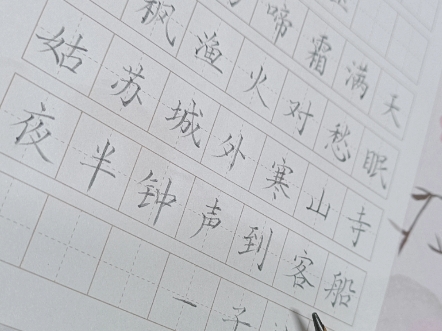 啼霜满天
枫渔火对愁眠
姑苏城外寒山寺
夜半钟声到客船
一子